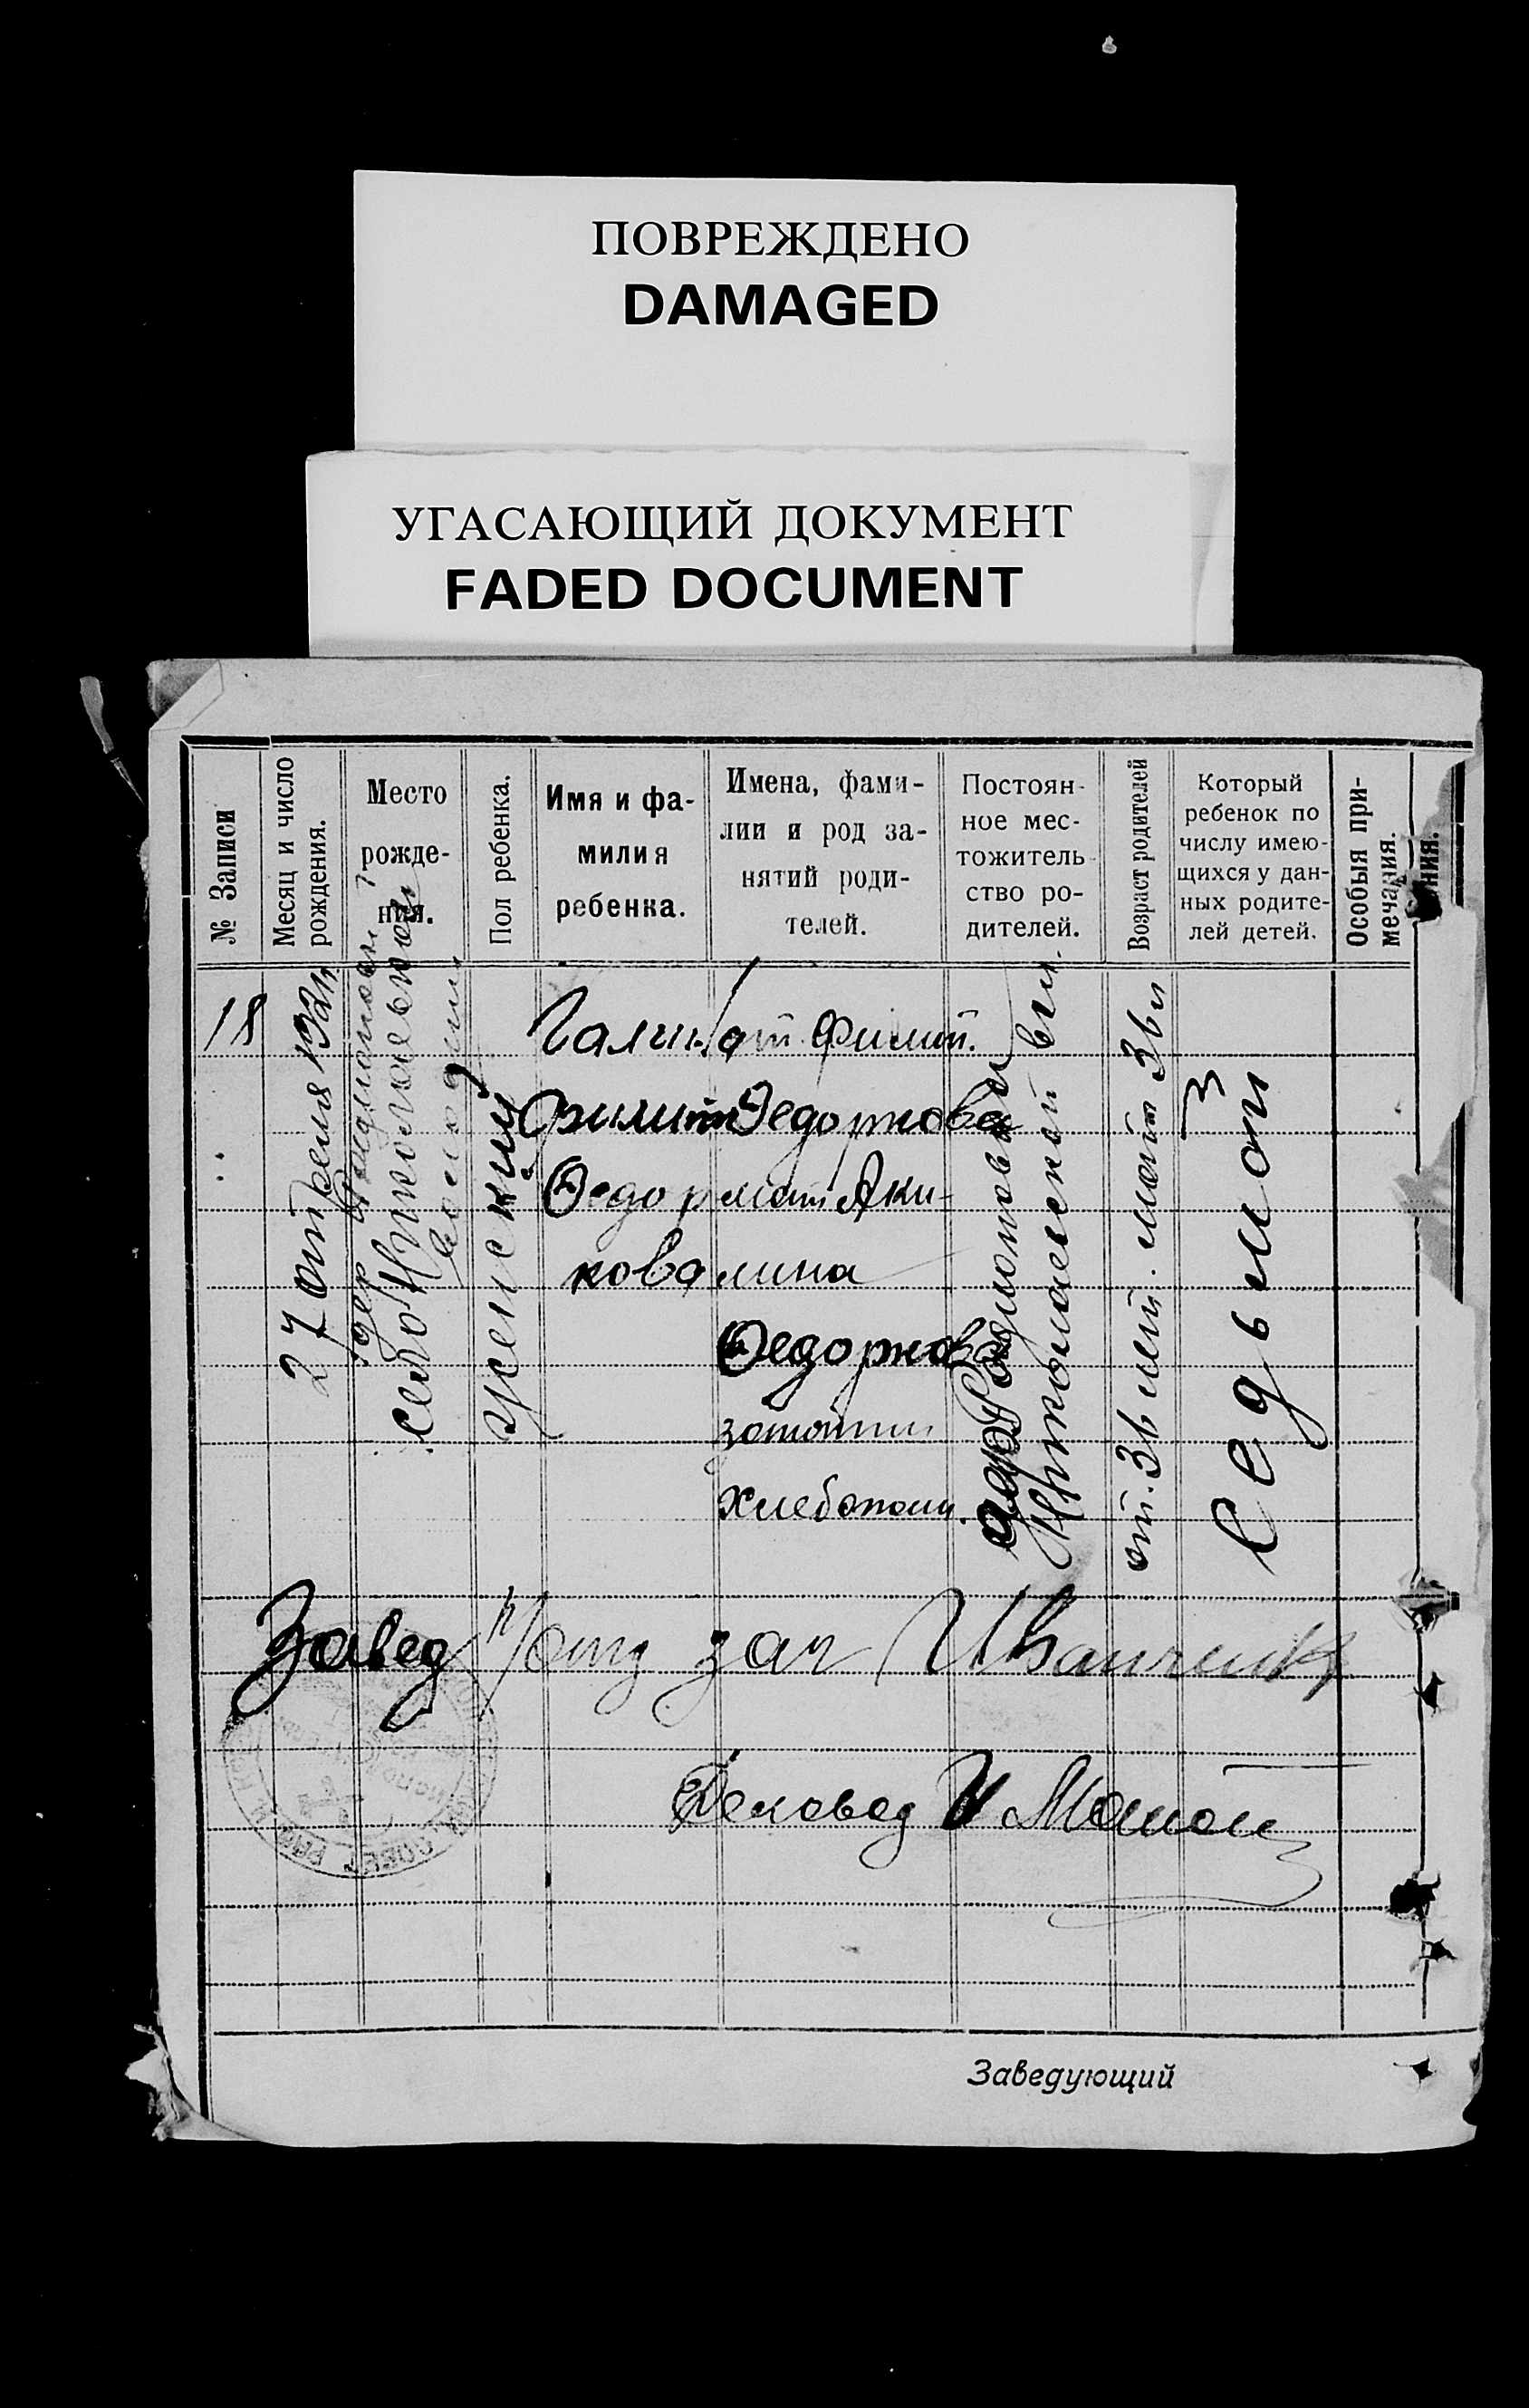 ПОВРЕЖДЕНО
DAMAGED
УГАСАЮЩИЙ ДОКУМЕНТ
FADED DOCUMENT
№ Записи
Месяц и число
рождения.
Место
рожде-
ния.
Пол ребенка.
Имя и фа-
милия
ребенка.
Имена, фами-
лии и род за-
нятий роди-
телей.
Постоян-
ное мес-
тожитель-
ство ро-
дителей.
Возраст родителей
Который
ребенок по
числу имею-
щихся у дан-
ных родите-
лей детей.
Особыя при-
мечания.
ния.
18
27 апреля
село Николаевка
женский
Галина
Филип
Федор
кова
от Филип.
Федорков
мат Аки-
лина
Федоркова
хлебопаш.
Николаевской вол.
от. 36 мат 36
3
Седьмой
Завед п/отд заг Иванченко
Деловод И
Заведующий